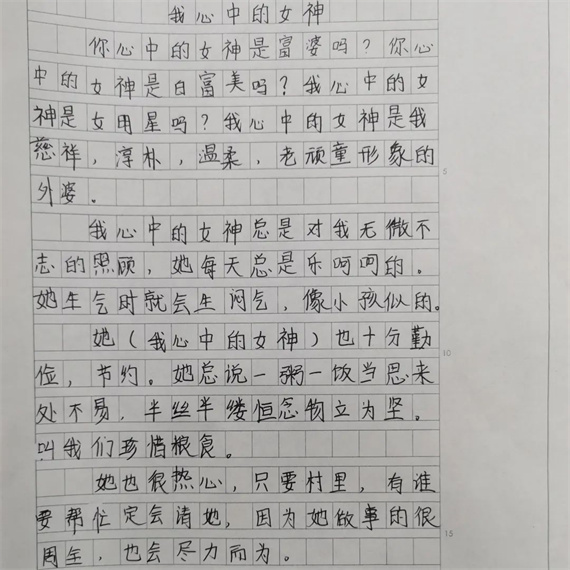 我心中的女神
你心中的女神是富婆吗？你心
中的女神是白富美吗？我心中的女
神是女明星吗？我心中的女神是我
慈祥，淳朴，温柔，老顽童形象的
外婆。
我心中的女神总是对我无微不
志的照顾，她每天总是乐呵呵的。
她生气时就会生闷气，像小孩似的。
她（我心中的女神）也十分勤
俭，节约。她总说一粥一饭当思来
处不易，半丝半缕恒念物立为坚。
叫我们珍惜粮食。
她也很热心，只要村里，有谁
要帮忙定会请她，因为她做事的很
周全，也会尽力而为。
5
10
15